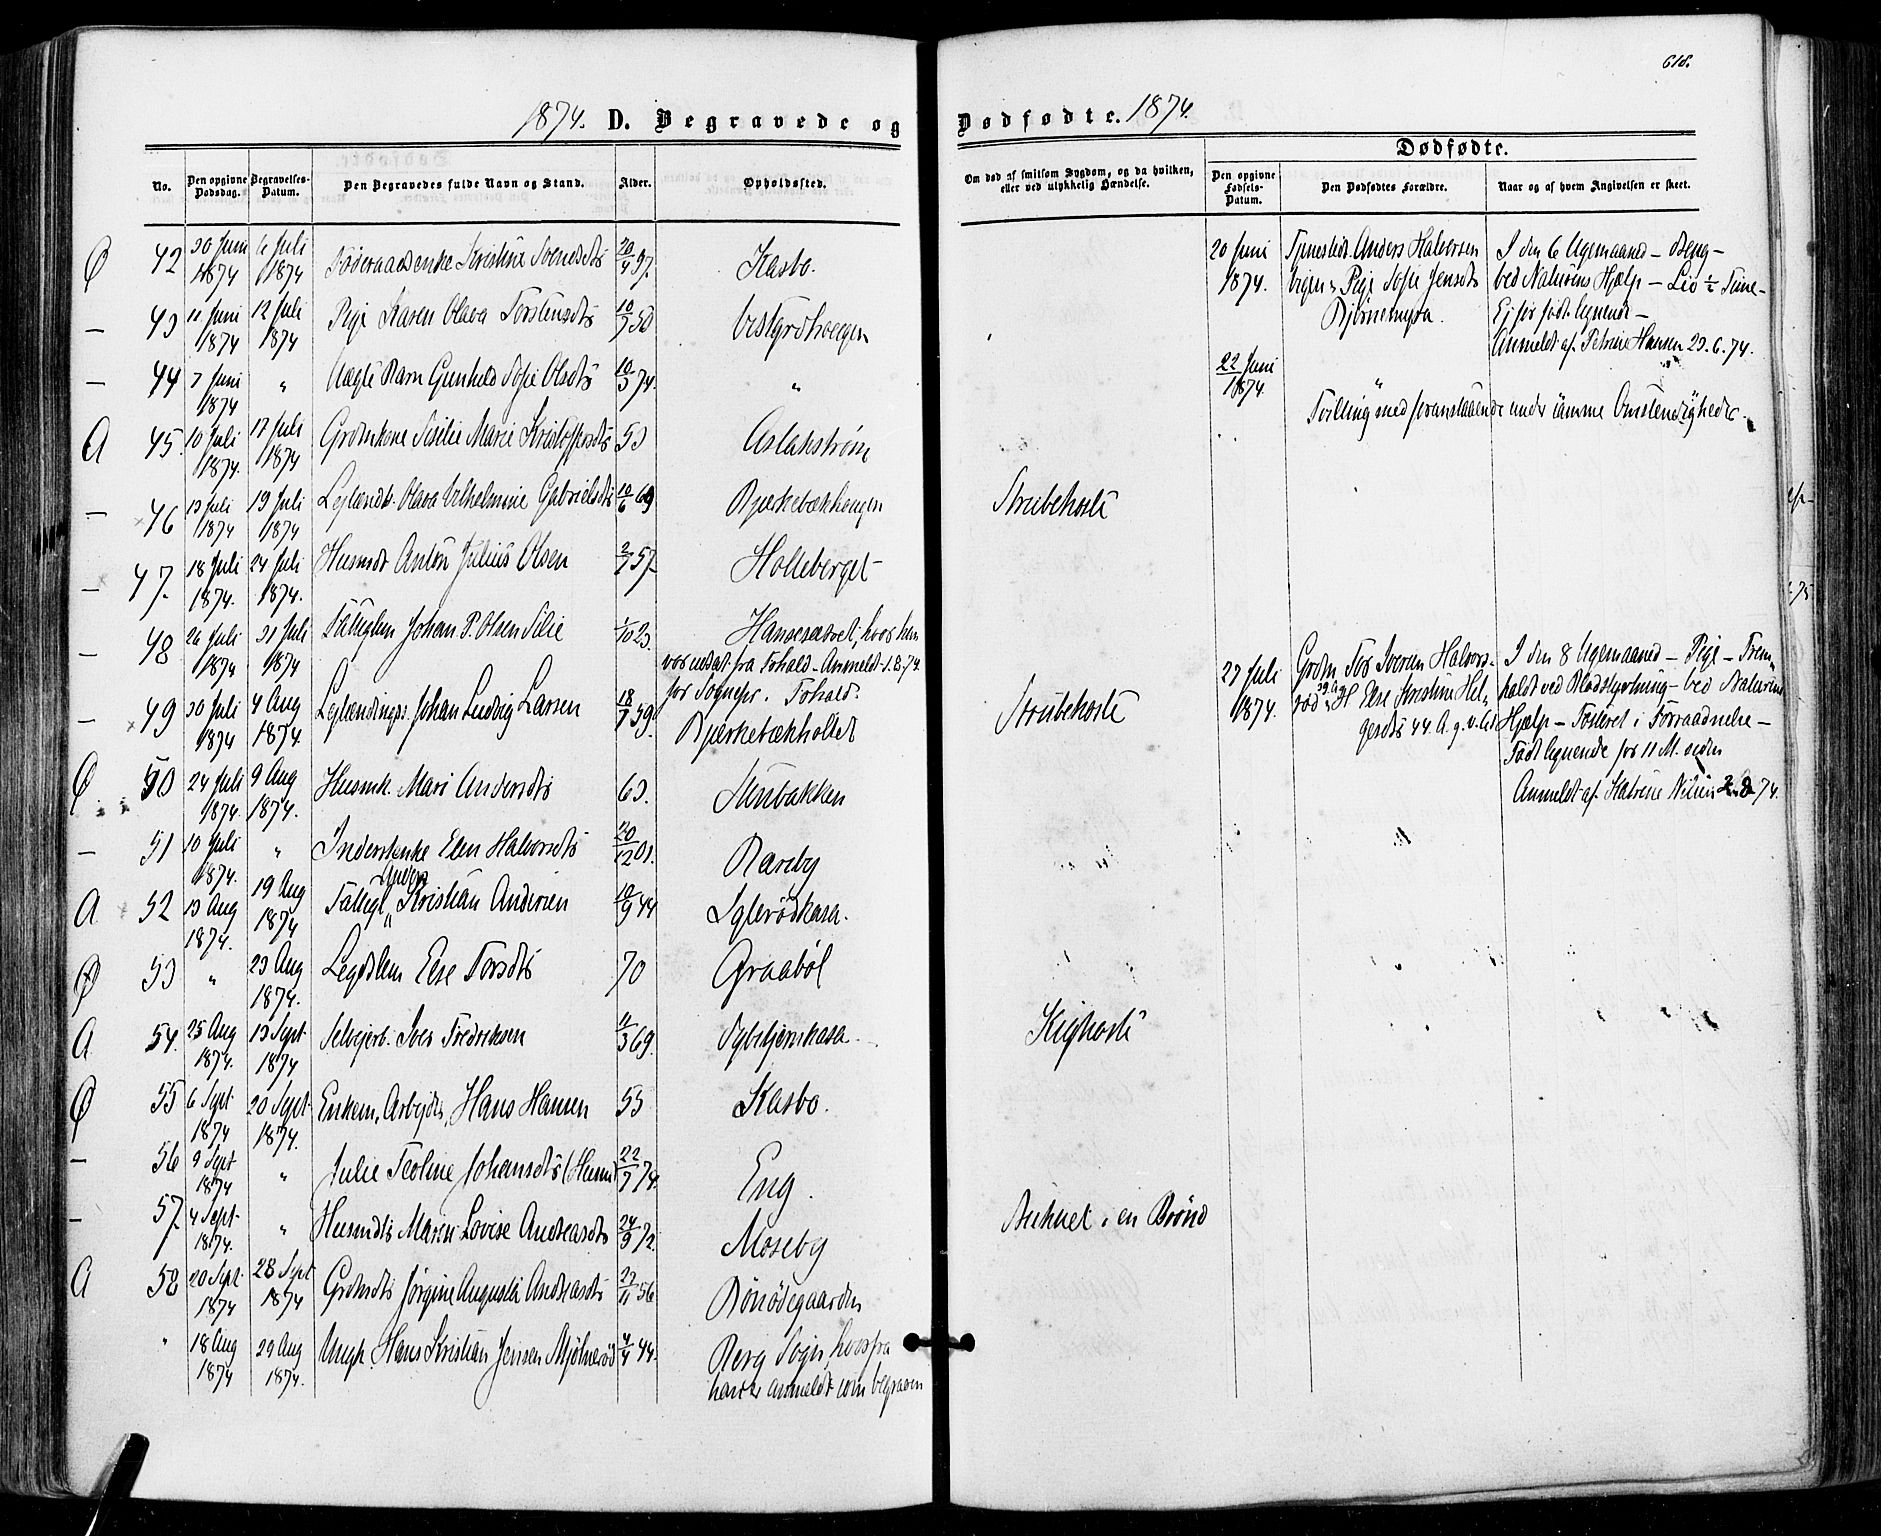 618.
1874. D. Begravede og Dødfødte. 1874.
No. Den opgivne Dødsdag. Begravelses-Datum. Den Begravedes fulde Navn og Stand. Alder. Opholdssted. Om død af smitsom Sygdom, og da hvilken, eller ved ulykkelig Hændelse. Dødfødte.
Den opgivne Fødsels-Datum. Den Dødfødtes Forældre. Naar og af hvem Angivelsen er skeet.
Ø 42 30 Juni 1874 6 Juli 1874 Føderaadsenke Kristine Svendsdts 20/9 97. Kasbo.
— 43 11 Juni 1874 12 Juli 1874 Pige Karen Olava Torstensdts 10/7 58
— 44 7 Juni 1874 " Uægte Barn Gunhild Sofie Olsdts 10/3 74. "
A 45. 10 Juli 1874. 17 Juli 1874 Grdmkone Sisilie Marie Kristoffersdts 53 Aslakstrøm
— 46 13 Juli 1874 19 Juli 1874 Leilændt. Olava Vilhelmine Gabrielsdts 10/6 69 Bjerkebækhaugen Strubehoste
— 47. 18 Juli 1874. 24 Juli 1874. Husmdt Anton Julius Olsen 2/7 57. Holleberget
— 48 26 Juli 1874 31 Juli 1874 Fattiglem Johan P. Olsen Filie 1/10 23. Hansesætret, hvor han
var udsat fra Fohald - Anmeldt 1.8.74.
for Sognepr. Fohald.
— 49 30 Juli 1874 4 Aug 1874 Leilændings. Johan Ludvig Larsen 18/7 59. Bjerkebækholtet Strubehoste
Ø 50 24 Juli 1874. 9 Aug 1874. Husmk. Mari Andersdts 63. Stenbakken
— 51 10 Juli 1874. " Inderstenke Elen Halvorsdts 20/12 01. Rareby
A 52 13 Aug 1874. 19 Aug 1874 Fattigl. Anders Kristian Andersen 10/9 44 Iglerødkasa.
Ø 53 " 23 Aug 1874. Legdslem Else Torsdts 70 Graabøl
A 54. 25 Aug 1874. 13 Sept 1874 Selveierb. Iver Fredriksen 11/3 69. Kighoste
Ø 55 6 Sept 1874 20 Sept 1874. Enkem, Arbejder, Hans Hansen 55 Kasbo.
— 56 9 Sept 1874 " Julie Teoline Johansdts (Husm) 22/7 74. Eng.
— 57. 4 Sept 1874. " Husmdts Maren Lovise Andreasdts 24/9 72. Moseby Druknet i en Brønd
A 58 20 Sept 1874 28 Sept 1874 Grdmdts Jørgine Augusta Andreasdts 27/11 56 Bønødegaarden
" 18 Aug 1874 29 Aug 1874. Ungk. Hans Kristian Jensen Mjølnerød 4/4 44. Berg Sogn, hvorfra
han er anmeldt som begraven
20 Juni 1874. Tjenestkd. Anders Halvorsen
Vigen & Pige Sofie Jensdts
Bjørnemyra.
I den 6 Ugemaaned - Dreng -
ved Naturens Hjælp - Liv ½ Time -
Ej før født lignende -
Anmeldt af Petrine Hansen 23.6.74.
22 Juni 1874.
Tvilling med foranstaaende under samme Omstendigheder.
27 Juli 1874. Grdm Tor Iversen Halvors-
rød 39 A. & H. Else Kristine Hel-
gesdts 44 A. g. v. lid
I den 8 Ugemaaned - Pige - Frem-
haldt ved Blodstyrtning - ved Naturens
Hjælp - Fosteret i Forraadnelse -
Født lignende for 11 M. siden
Anmeldt af Katrine 74.